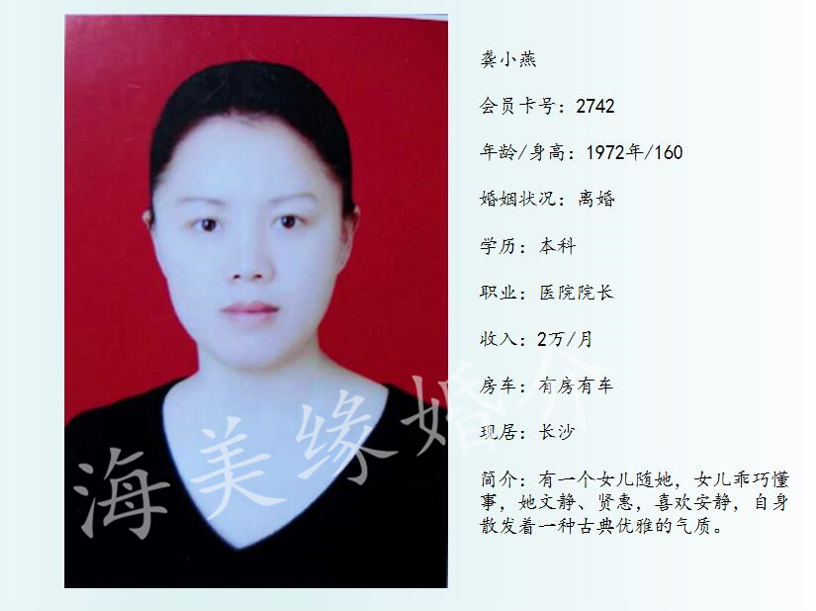 龚小燕
会员卡号：2742
年龄/身高：1972年/160
婚姻状况：离婚
学历：本科
职业：医院院长
收入：2万/月
房车：有房有车
现居：长沙
简介：有一个女儿随她，女儿乖巧懂
事，她文静、贤惠，喜欢安静，自身
散发着一种古典优雅的气质。
海美缘婚介